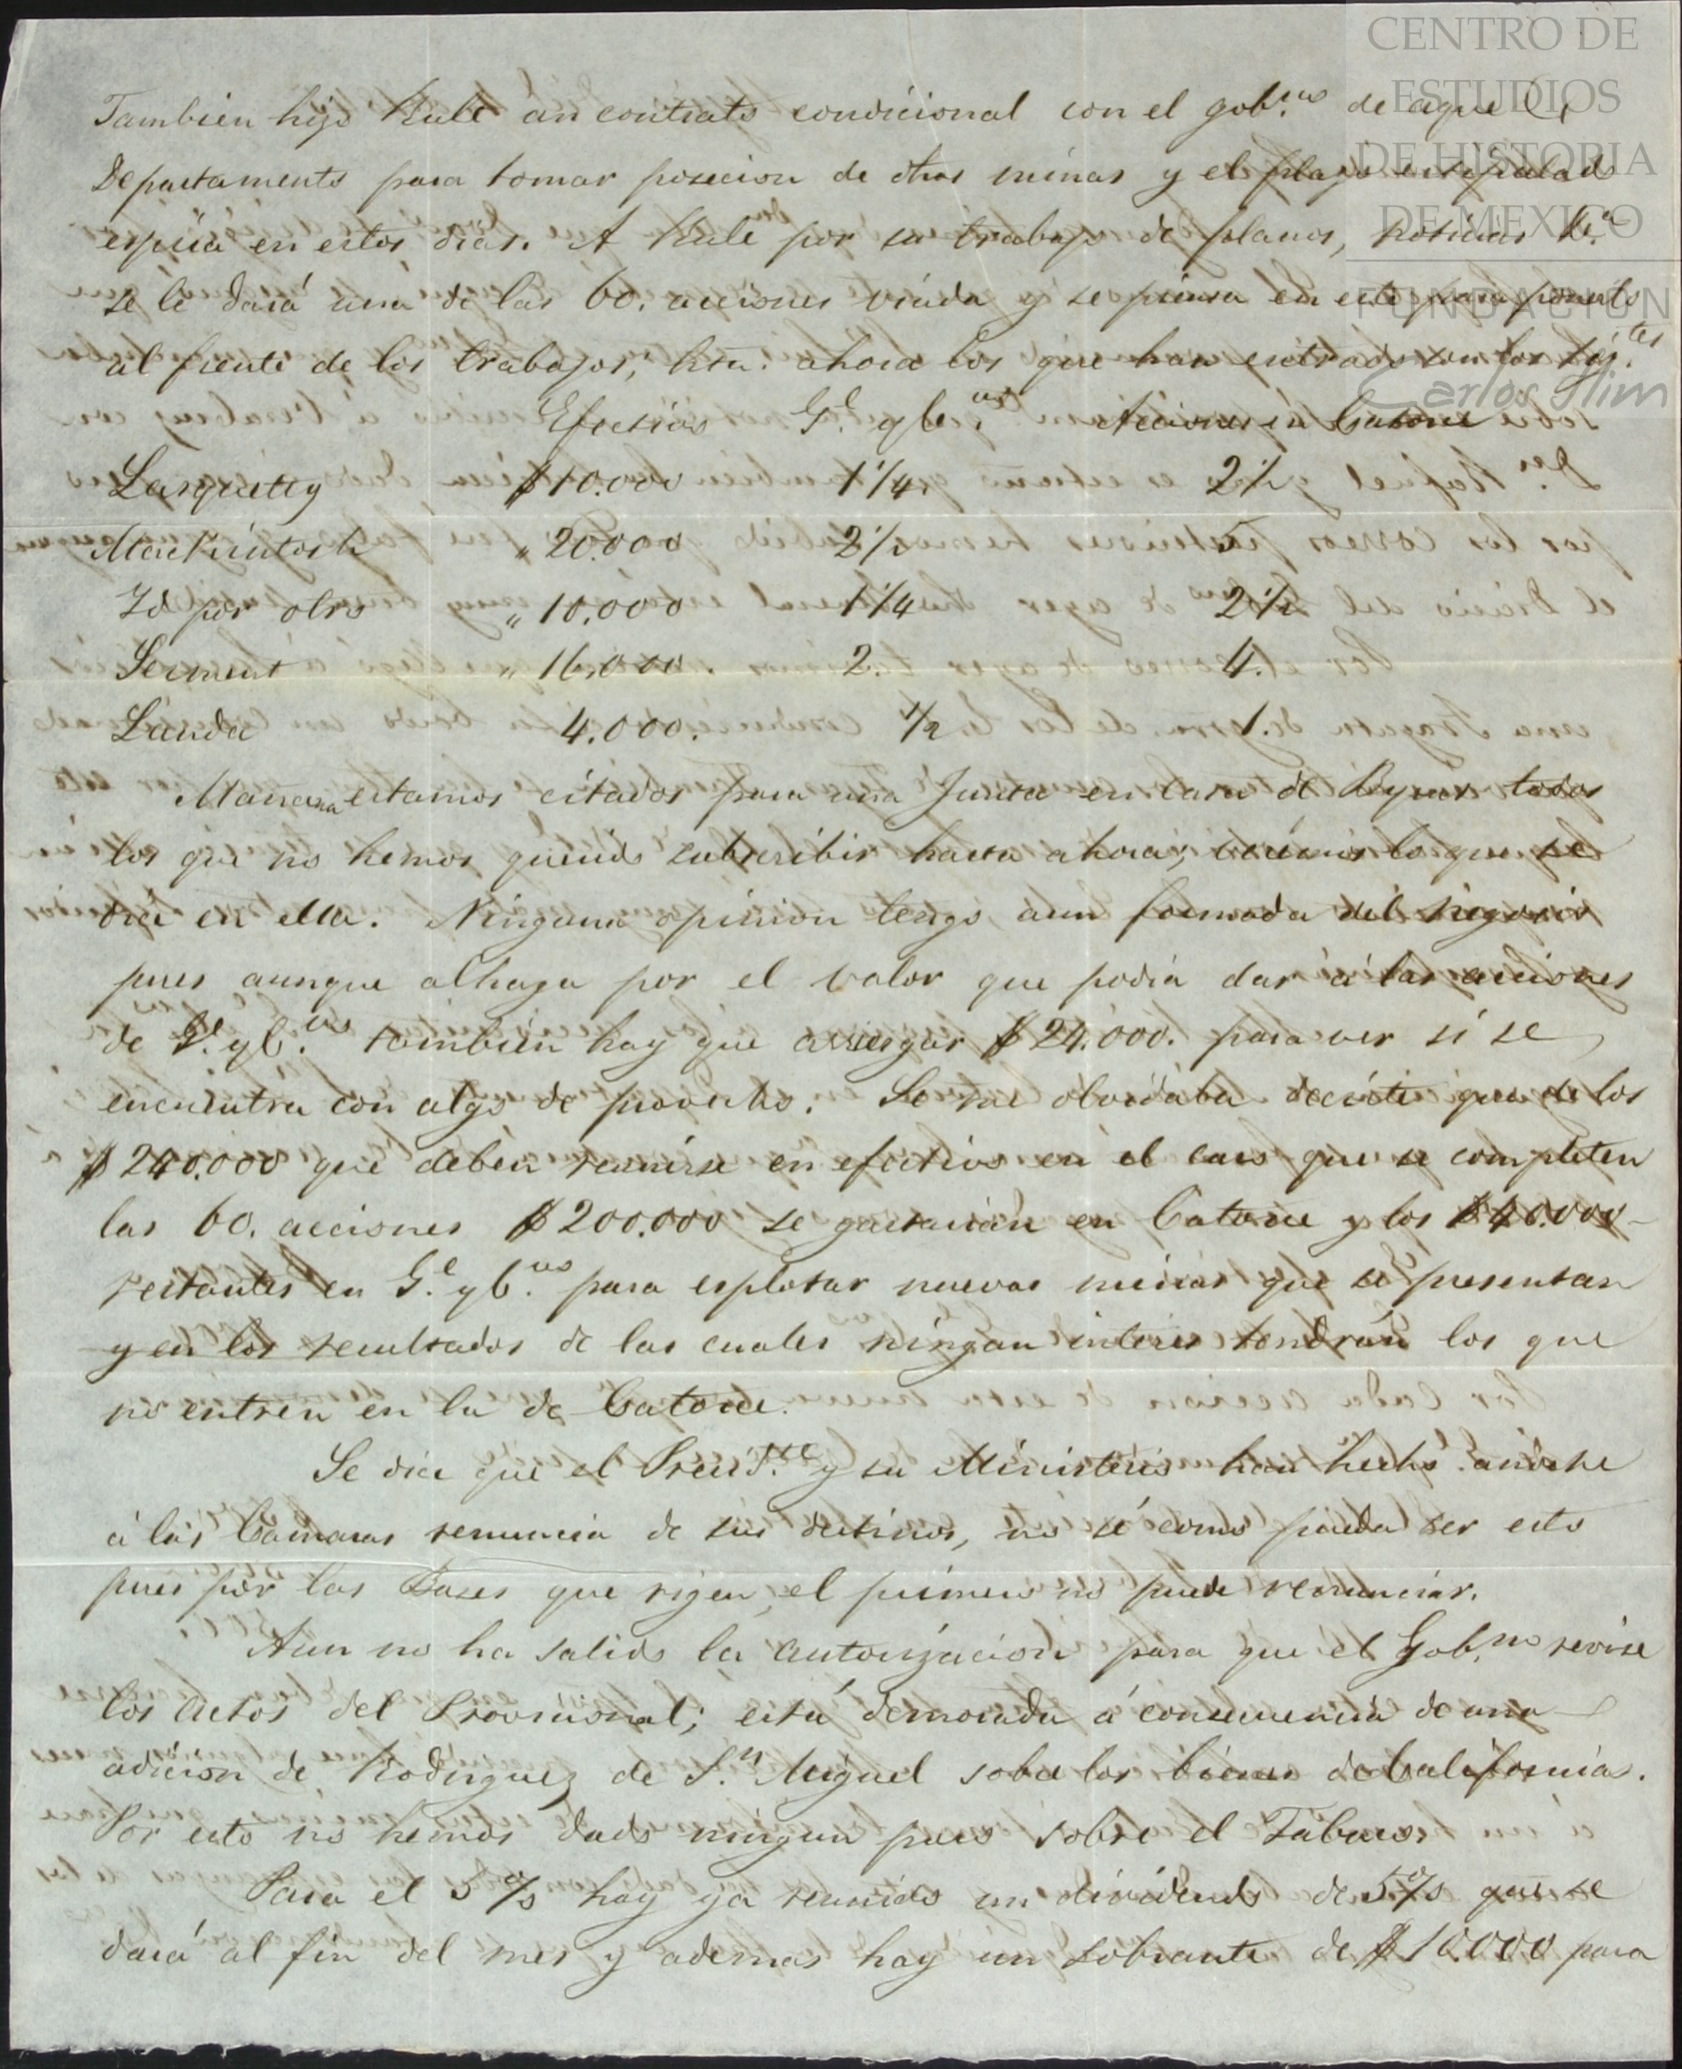 CENTRO DE
ESTUDIOS
DE HISTORIA
DE MEXICO
FUNDACION
Carlos Slim
Tambien hizo Rule un contrato condicional con el gob.no de aquel
Departamento para tomar posecion de otras minas y el plazo estipulado
espira en estos dias. A Rule por su trabajo de planos, noticias &.a
se le dará una de las 60. acciones viuda y se piensa en este para ponerlo
al frente de los trabajos; hta. ahora los que han entrado son los sig.tes
Efectivo G.e y C.os Acciones en Catorce
Lasquetty $10.000 1 1/4. 2 1/2
Mackintosh " 20.000 2 1/2 5
Id por otro " 10.000 1 1/4 2 1/2
Serment " 16.000. 2. 4.
Landa 4.000. 1/2 1.
Mañana estamos citados para una Junta en casa de todos
los que no hemos querido subscribir hasta ahora; veremos lo que se
dice en ella. Ninguna opinion tengo aun formada del negocio
pues aunque alhaga por el valor que podia dar á las acciones
de G.e y C.os tambien hay que arriesgar $24.000. para ver si se
encuentra con algo de provecho. Se me olvidaba decirte que de los
$240.000 que deben reunirse en efectivo en el caso que se completen
las 60. acciones $200.000 se gastarian en Catorce y los $40.000
restantes en G.e y C.os para esplotar nuevas minas que se presentan
y en los resultados de las cuales ningun interes tendrán los que
no entren en la de Catorce.
Se dice que el Presid.te y su Ministerio han hecho anoche
á las Camaras renuncia de sus destinos, no sé como pueda ser esto
pues por las Bases que rigen, el primero no puede renunciar.
Aun no ha salido la autorizacion para que el Gob.no revise
los actos del Provisional; está demorada á consecuencia de una
adicion de Rodriguez de S.n Miguel sobre los bienes de Californias.
Por esto no hemos dado ningun paso sobre el Tabaco.
Para el 5 % hay ya reunido un dividendo de 5 % que se
dará al fin del mes y ademas hay un sobrante de $10.000 para